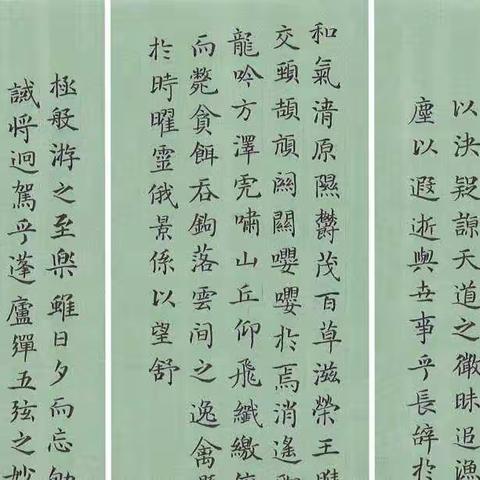 以決疑諒天道之微昧追漁
塵以遐逝與世事乎長辭於
和氣清原隰鬱茂百草滋榮王雎
交頸頡頏關關嚶嚶於焉消遙
龍吟方澤虎嘯山丘仰飛纖繳
而斃貪餌吞鉤落雲間之逸禽
於時曜靈俄景係以望舒
極般游之至樂雖日夕而忘劬
誡將迴駕乎蓬廬彈五弦之妙